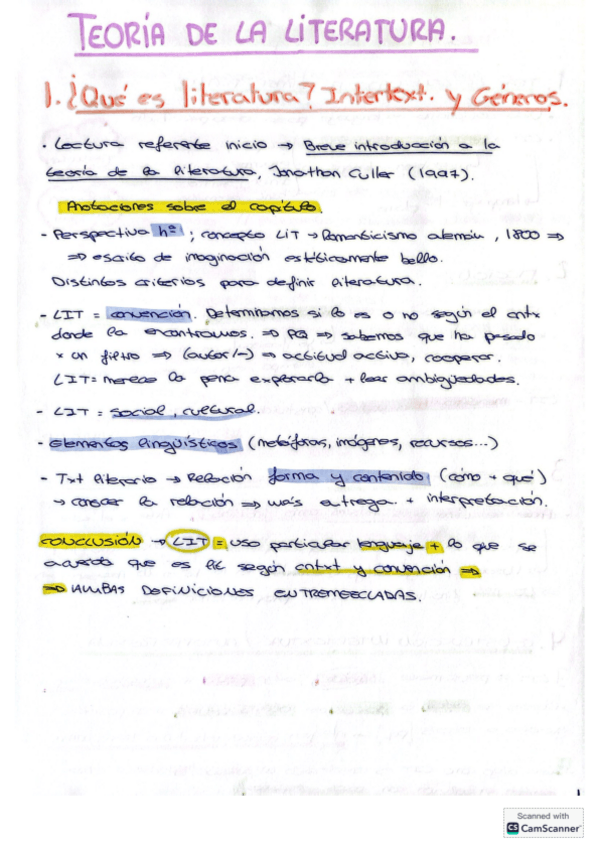 TEORÍA DE LA LITERATURA.
1. ¿Qué es literatura? Intertext. y Géneros.
· Lectura referente inicio → Breve introducción a la
teoría de la literatura, Jonathan Culler (1997).
Anotaciones sobre el capítulo.
- Perspectiva hª ; concepto LIT → Romanticismo alemán, 1800 ⇒
⇒ escrito de imaginación estéticamente bello.
Distintos criterios para definir literatura.
- LIT = convención. Determinamos si lo es o no según el cntx
donde la encontramos. ⇒ PQ ⇒ sabemos que ha pasado
x un filtro ⇒ (autor/-) ⇒ actitud activa, cooperar.
LIT = merece la pena explorarla + leer ambigüedades.
- LIT = social, cultural.
- Elementos lingüísticos (metáforas, imágenes, recursos...)
- Txt literario → Relación forma y contenido (cómo + qué)
→ conocer la relación ⇒ más entrega + interpretación.
CONCLUSIÓN → LIT = uso particular lenguaje + lo que se
acuerda que es lit según cntxt y convención ⇒
⇒ AMBAS DEFINICIONES ENTREMEZCLADAS.
1
Scanned with
CS CamScanner